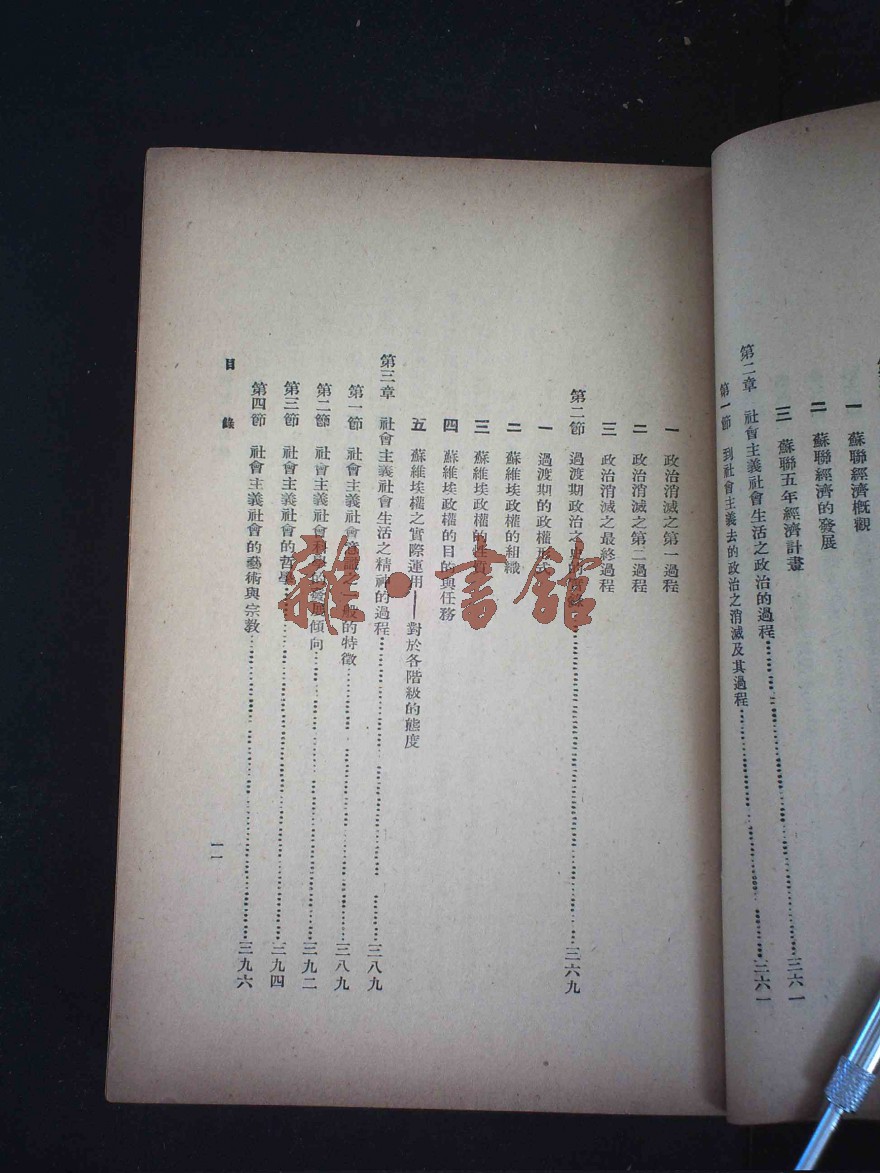 一 蘇聯經濟概觀
二 蘇聯經濟的發展
三 蘇聯五年經濟計畫
第二章 社會主義社會生活之政治的過程……三六一
第一節 到社會主義去的政治之消滅及其過程……三六一
一 政治消滅之第一過程
二 政治消滅之第二過程
三 政治消滅之最終過程
第二節 過渡期政治之史的實錄……三六九
一 過渡期的政權形式
二 蘇維埃政權的組織
三 蘇維埃政權的性質
四 蘇維埃政權的目的與任務
五 蘇維埃權之實際運用——對於各階級的態度
第三章 社會主義社會生活之精神的過程……三八九
第一節 社會主義社會意識之一般的特徵……三八九
第二節 社會主義社會科學的發展傾向……三九二
第三節 社會主義社會的哲學……三九四
第四節 社會主義社會的藝術與宗教……三九六
目錄
一一
雜·書館